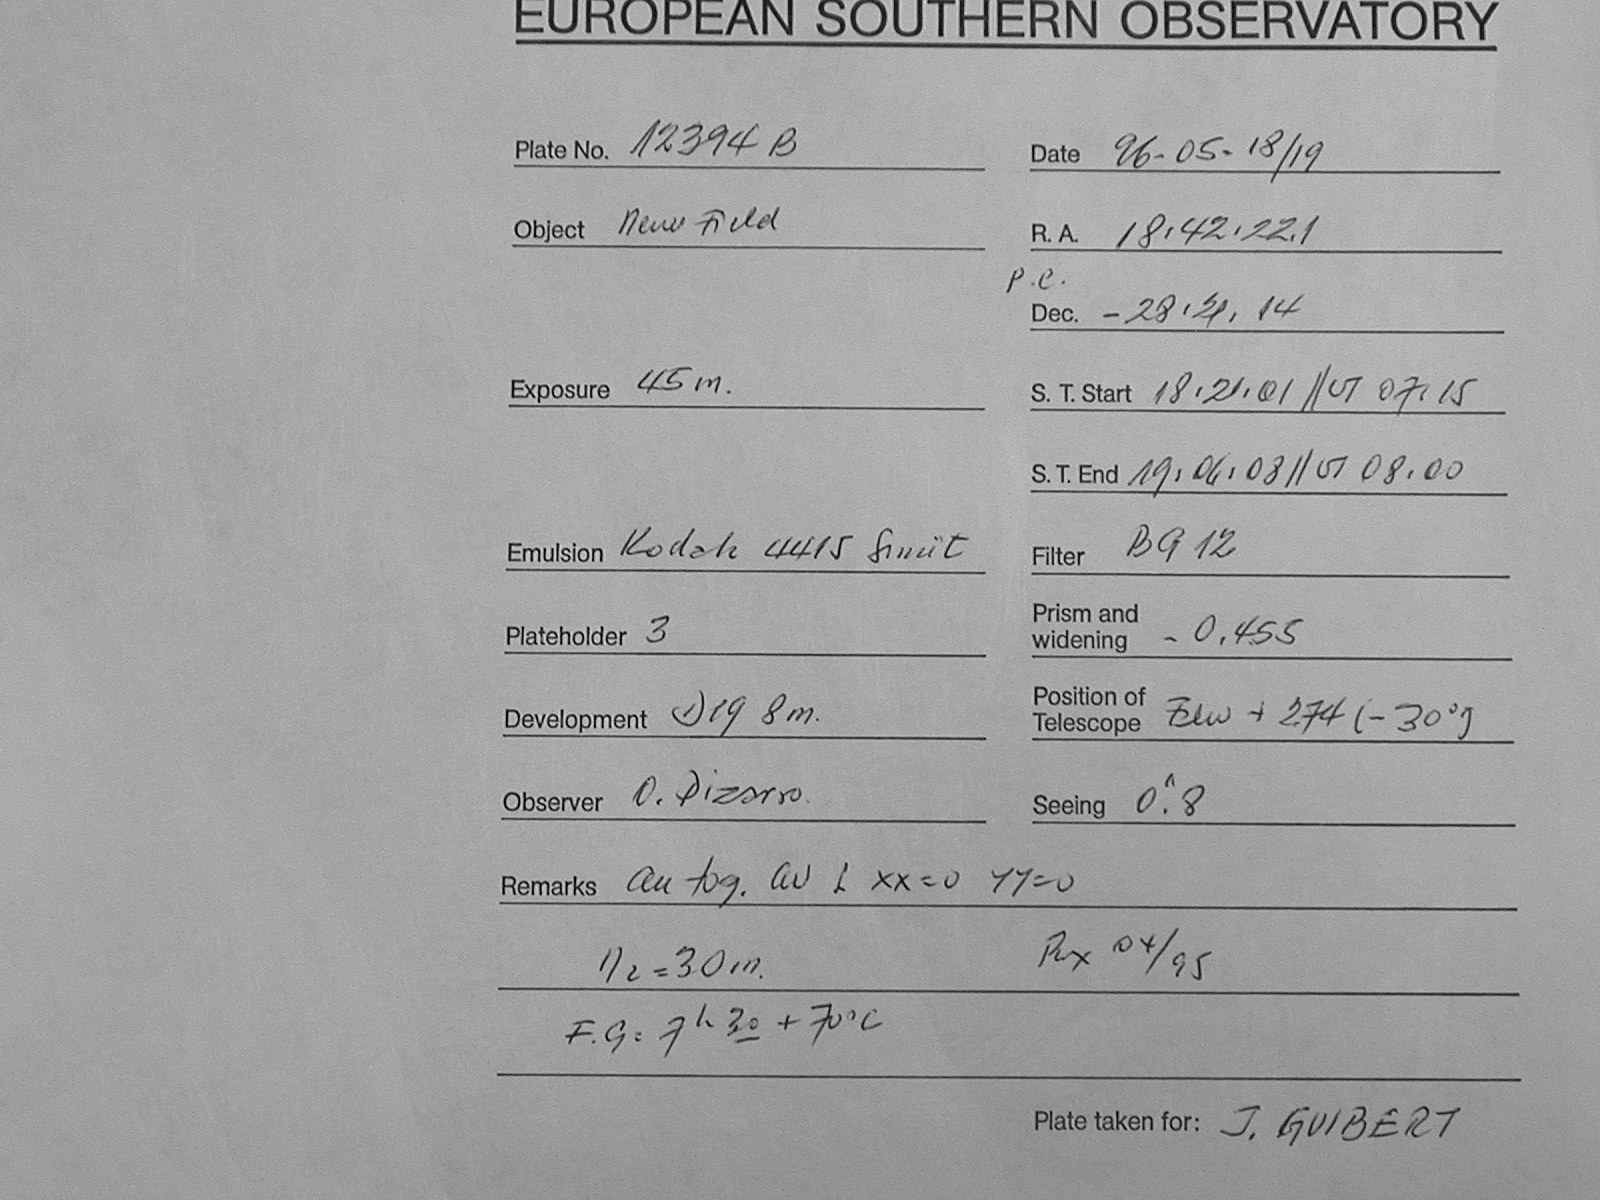 EUROPEAN SOUTHERN OBSERVATORY
Plate No. 12394 B
Date 96-05-18/19
Object New Field
R. A. 18.42.22.1
P.C.
Dec. -28. 14
Exposure 45 m.
S. T. Start 18.21.01 // UT 07.15
S. T. End 19.06.08 // UT 08.00
Emulsion Kodak 4415
Filter BG 12
Plateholder 3
Prism and
widening - 0.455
Development D19 8m.
Position of
Telescope + 274 (-30°)
Observer O. Pizarro.
Seeing 0."8
Remarks autog. xx=0 yy=0
N2=30m.
Rx 04/95
F.G: 7h 30 + 70°C
Plate taken for: J. GUIBERT